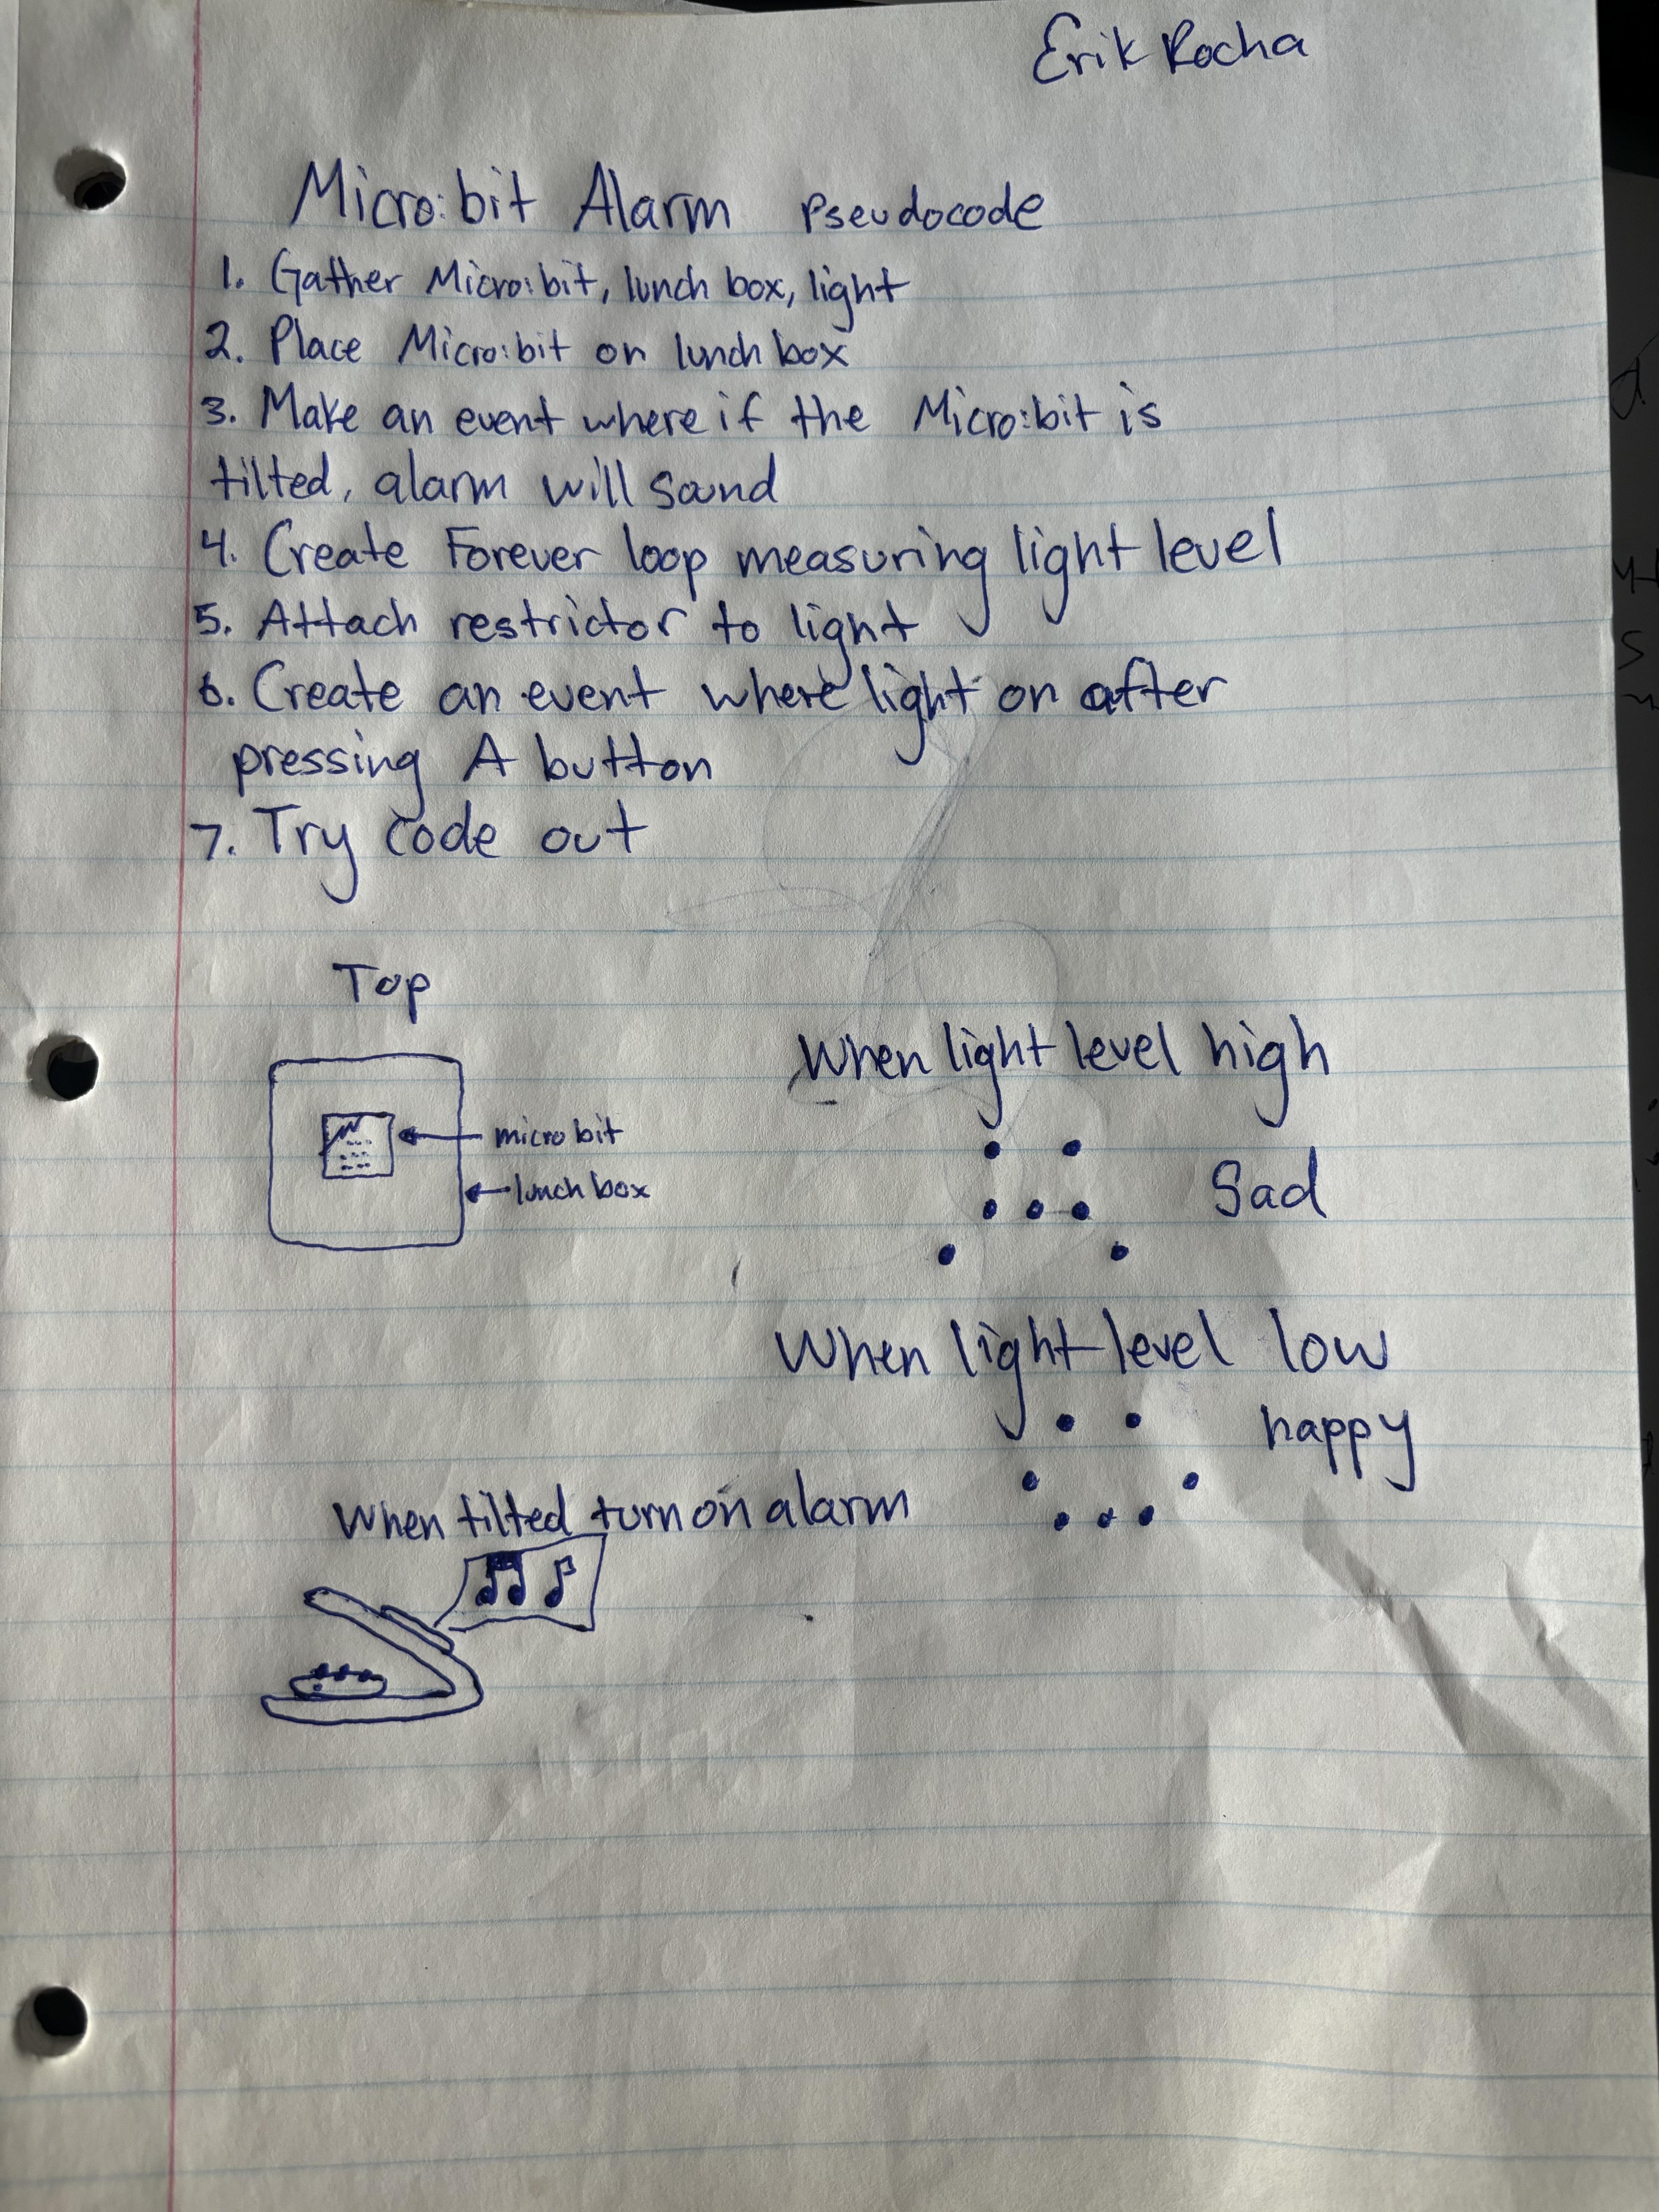 Erik Rocha
Micro:bit Alarm Pseudocode
1. Gather Micro:bit, lunch box, light
2. Place Micro:bit on lunch box
3. Make an event where if the Micro:bit is
tilted, alarm will sound
4. Create Forever loop measuring light level
5. Attach restrictor to light
6. Create an event where light on after
pressing A button
7. Try code out
Top
micro bit
lunch box
When light level high
Sad
When light level low
happy
When tilted turn on alarm